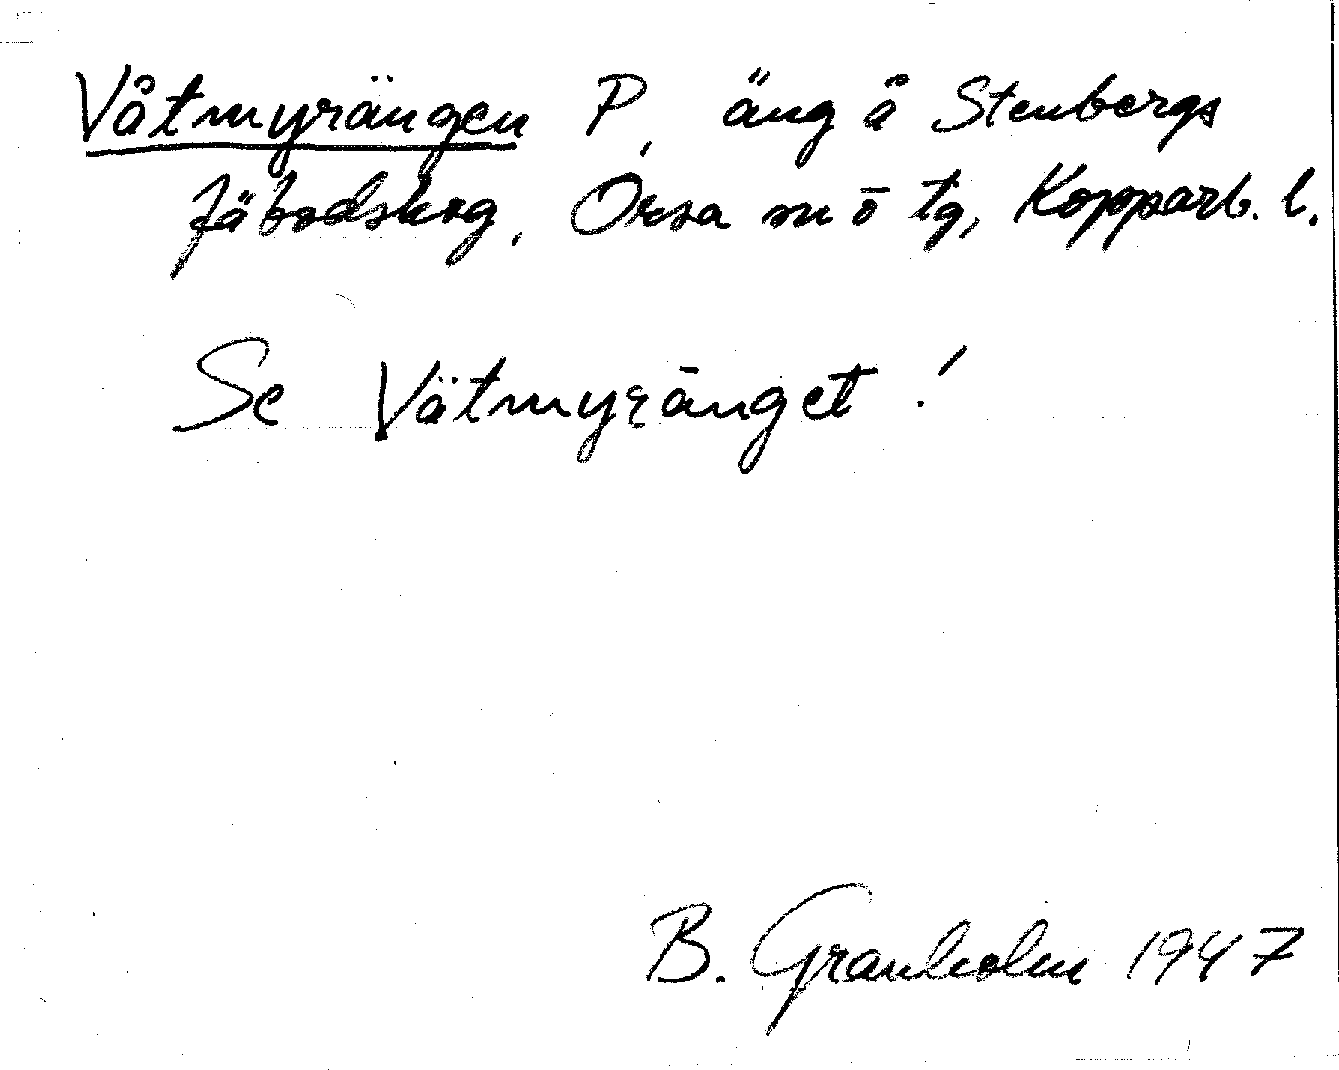 Våtmyrängen P, äng å Stenbergs
fäbodskog, Orsa sn o tg, Kopparb. l.
Se Våtmyränget!
B. Granholm 1947